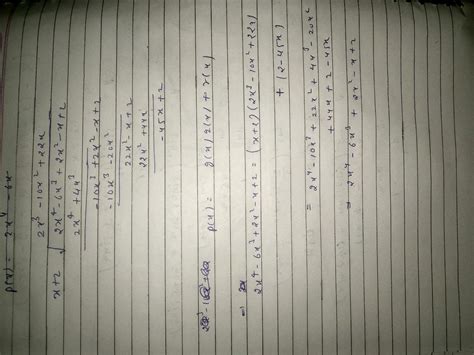 p(x) = 2x⁴ - 6x
2x³ - 10x² + 22x
x+2 √ 2x⁴ - 6x³ + 2x² - x + 2
2x⁴ + 4x³
-10x³ + 2x² - x + 2
-10x³ - 20x²
22x² - x + 2
22x² + 44x
-45x + 2
p(x) = g(x) q(x) + r(x)
2x⁴ - 6x³ + 2x² - x + 2 = (x+2)(2x³ - 10x² + 22x)
+ (2 - 45x)
= 2x⁴ - 10x³ + 22x² + 4x³ - 20x²
+ 44x + 2 - 45x
= 2x⁴ - 6x³ + 2x² - x + 2